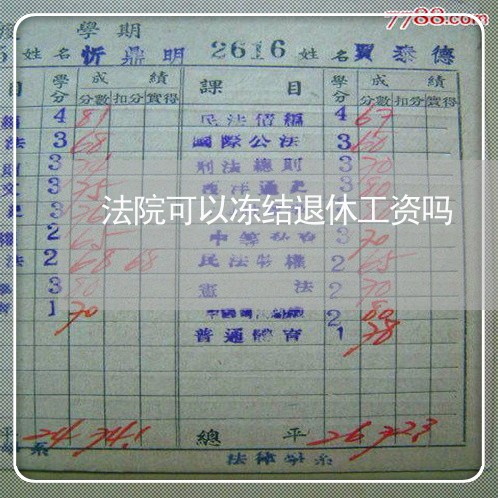 7788.com
學期
姓名 忻鼎明 2616 姓名 賈泰德
目 學分 成績 課目 學分 成績
分數 扣分 實得 分數 扣分 實得
4 81 民法債編 4 67
法 3 68 國際公法 3 60
3 刑法總則 3 70
3 75 西洋通史 3 80
法院可以冻结退休工资吗
2 65 3 70
法 2 68 68 民法物權 2 65
3 80 憲法 2 70
1 70 2 80
普通體育 1 78
平 24 74.1 總平 26 72.3
系 法律學系